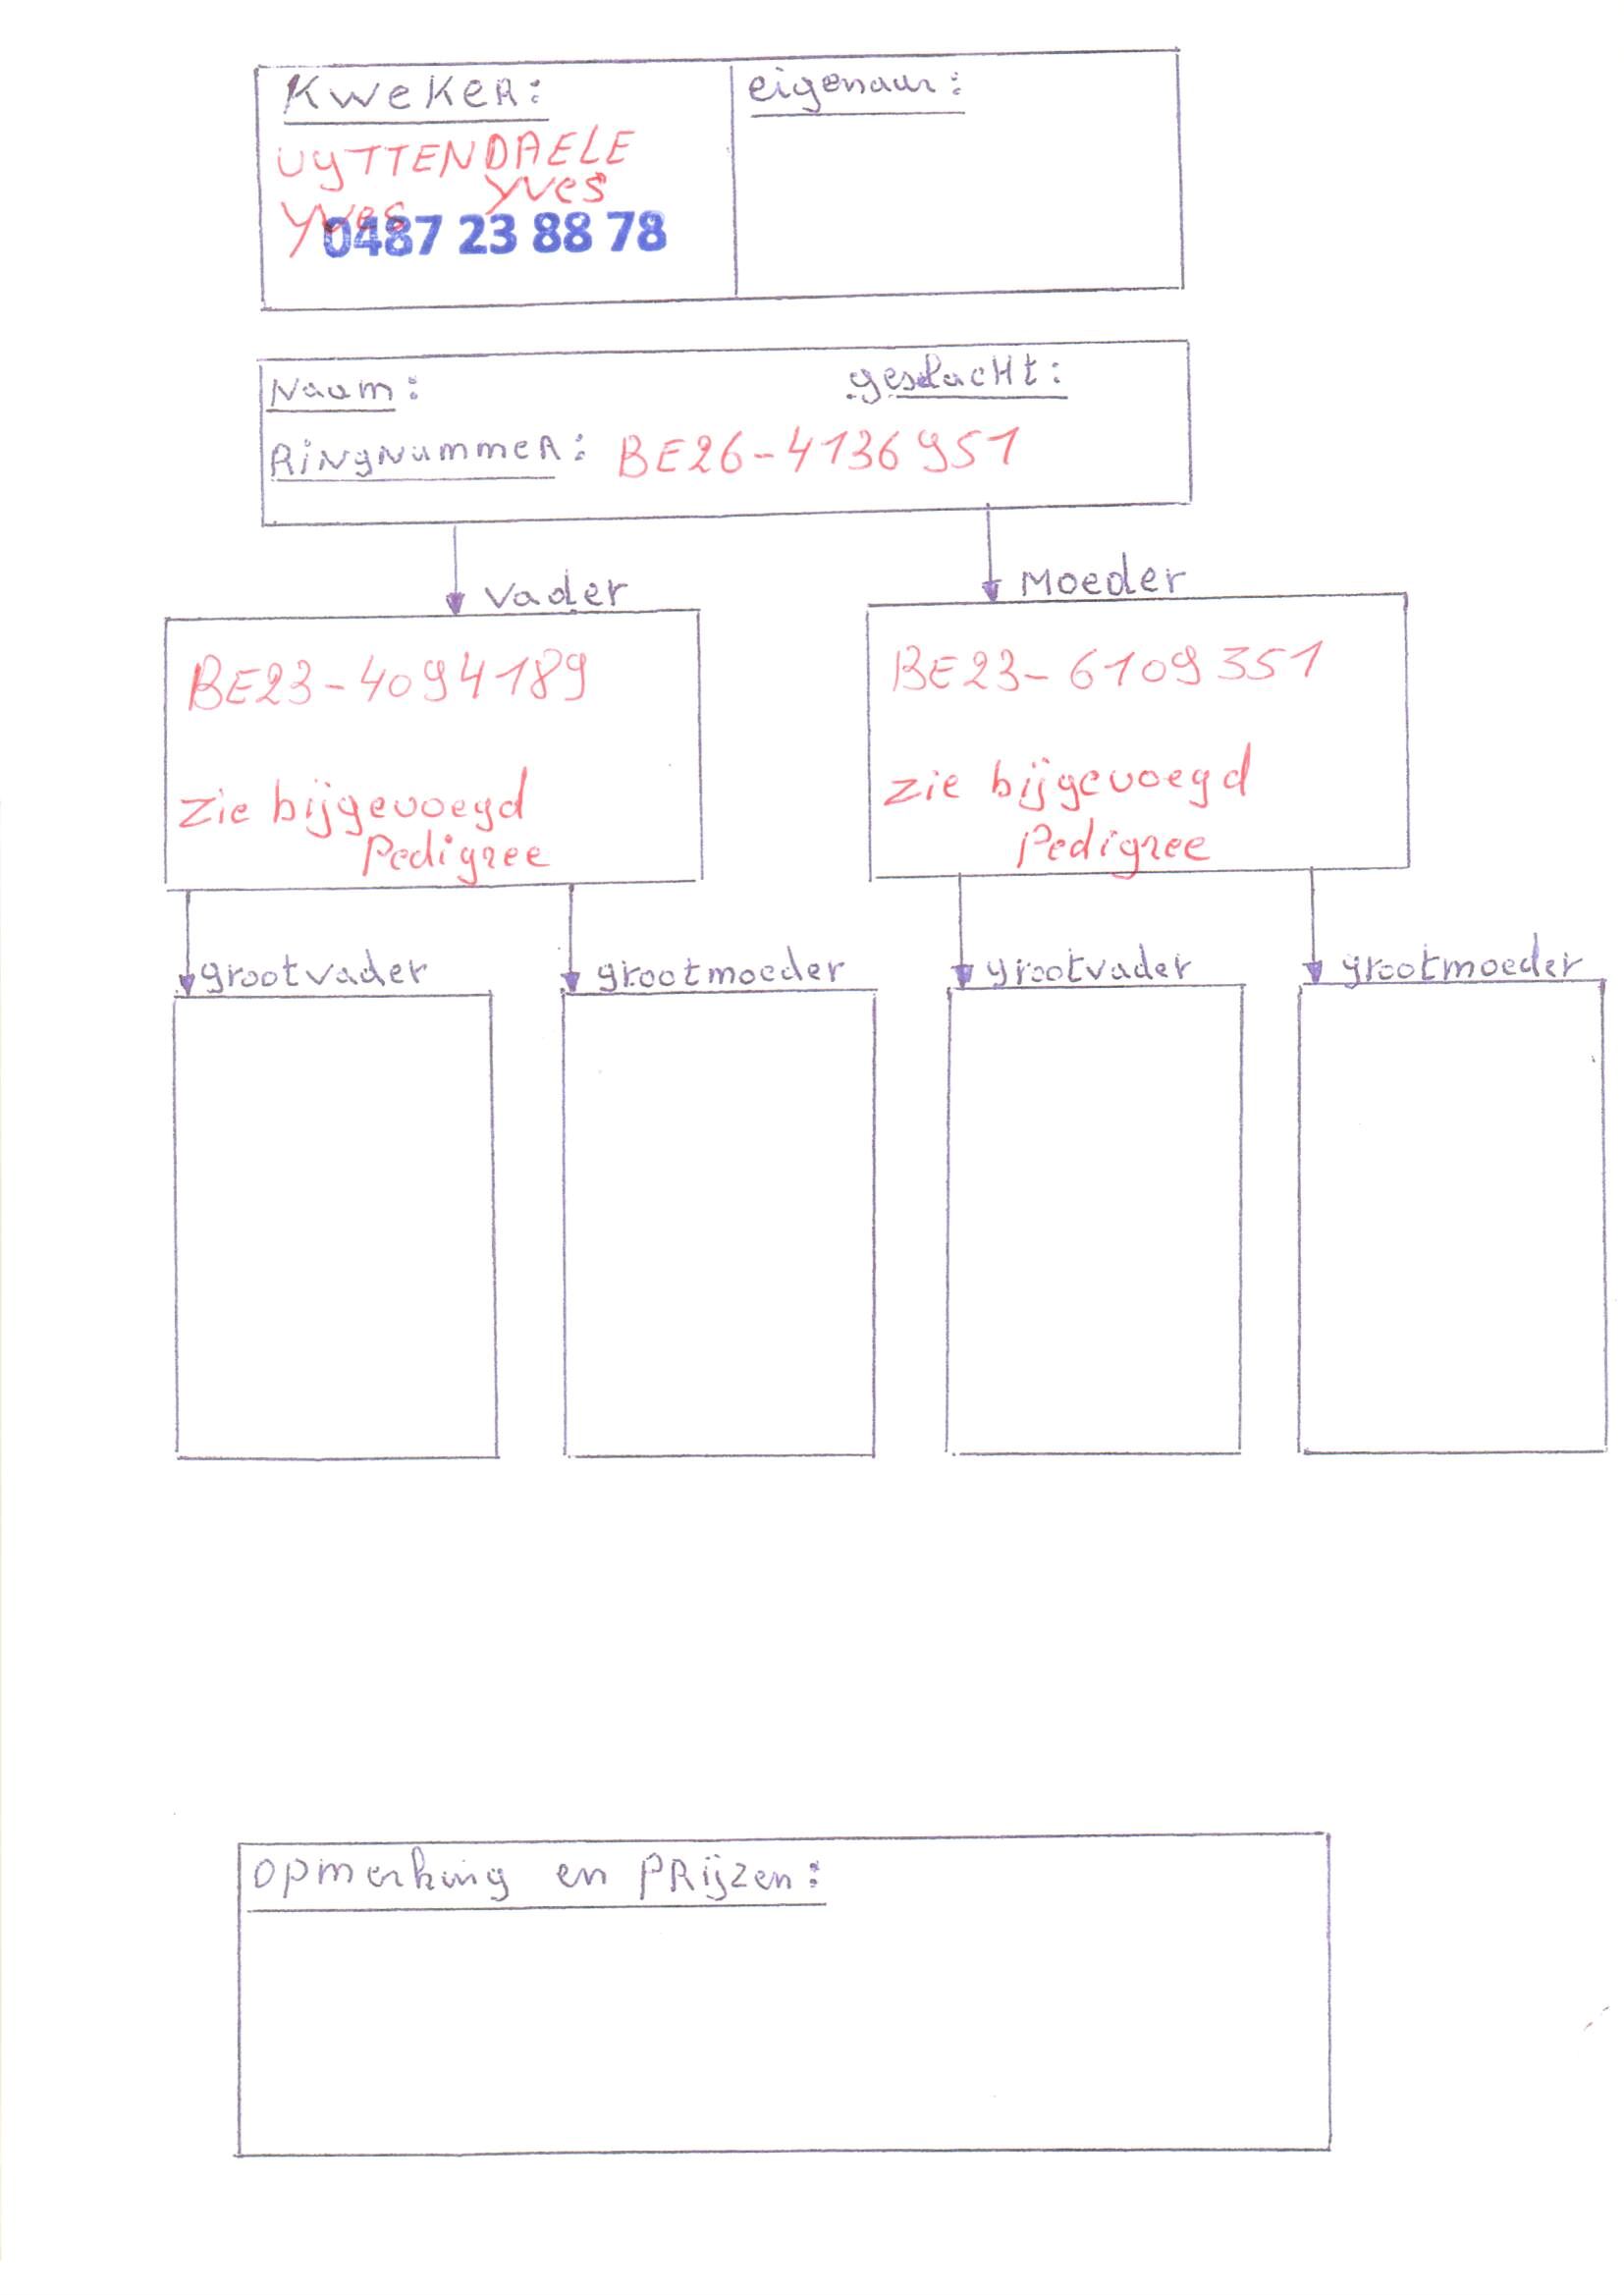 KWEKER:
UYTTENDAELE
YVES
YVES
0487 23 88 78
eigenaar:
Naam:
geslacht:
RINGNUMMER: BE26-4136951
Vader
BE23-4094189
zie bijgevoegd
Pedigree
Moeder
BE23-6109351
zie bijgevoegd
Pedigree
grootvader
grootmoeder
grootvader
grootmoeder
opmerking en PRijzen: